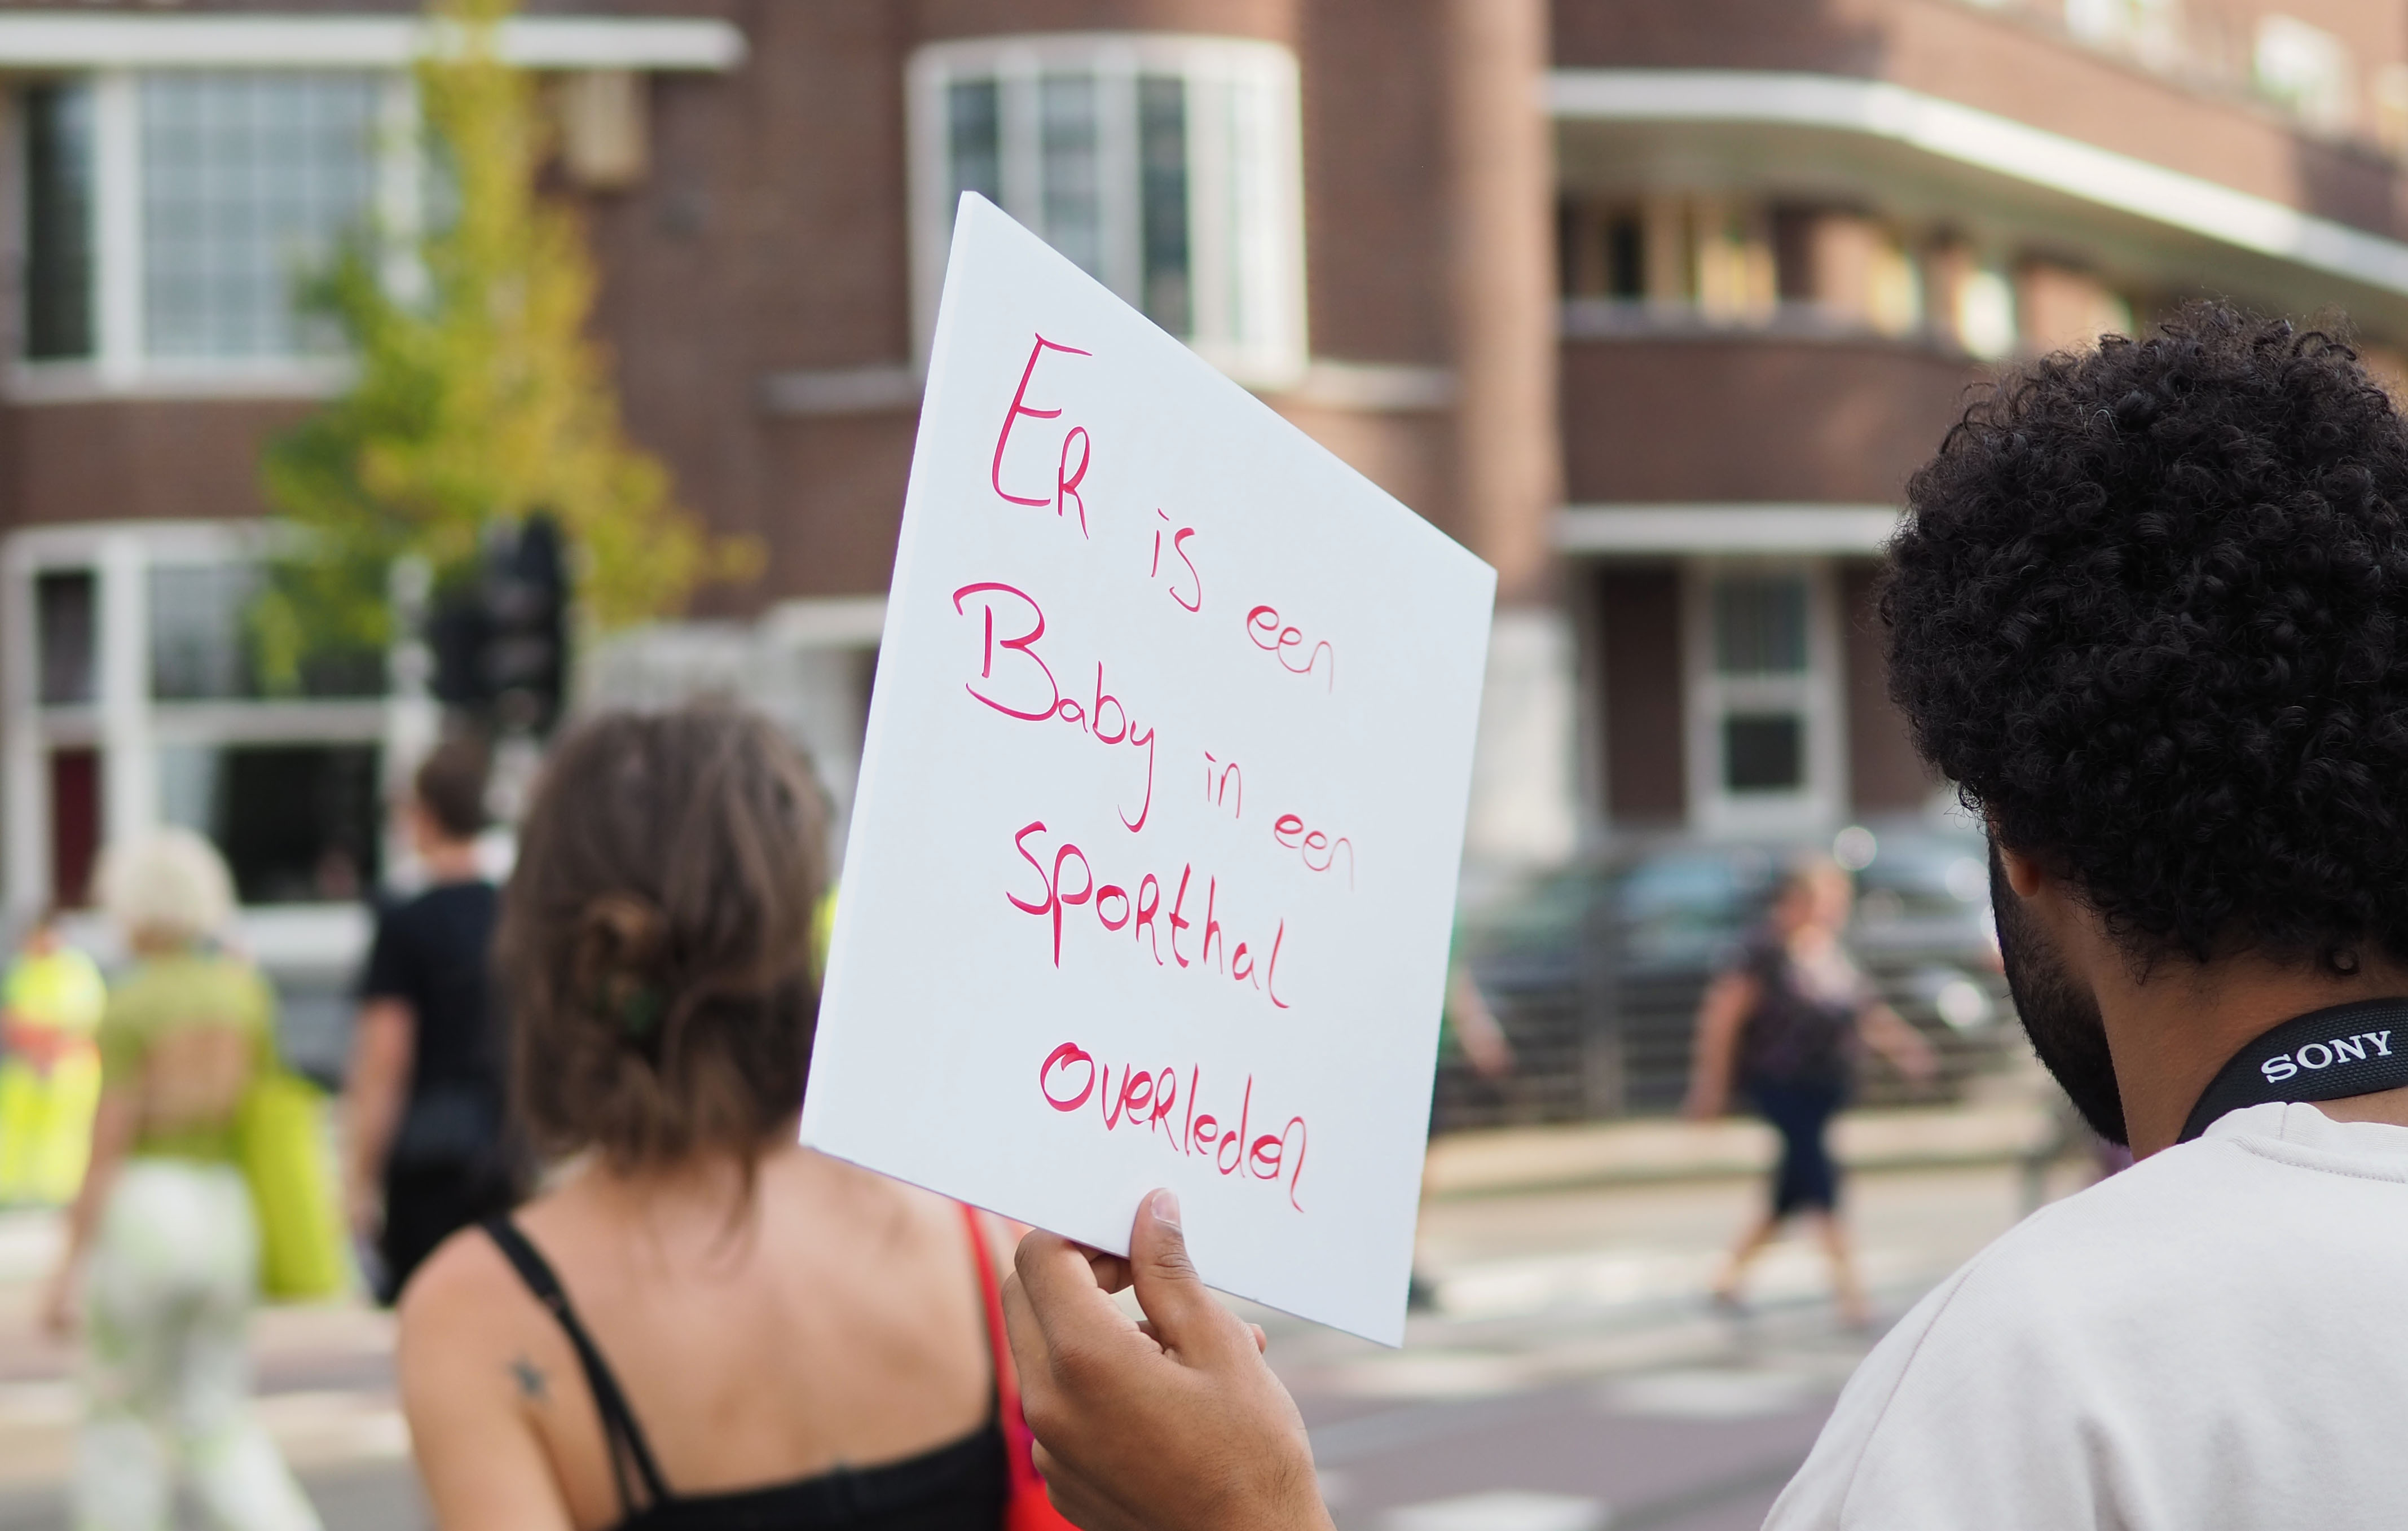 ER is een
Baby in een
Sporthal
overleden
SONY